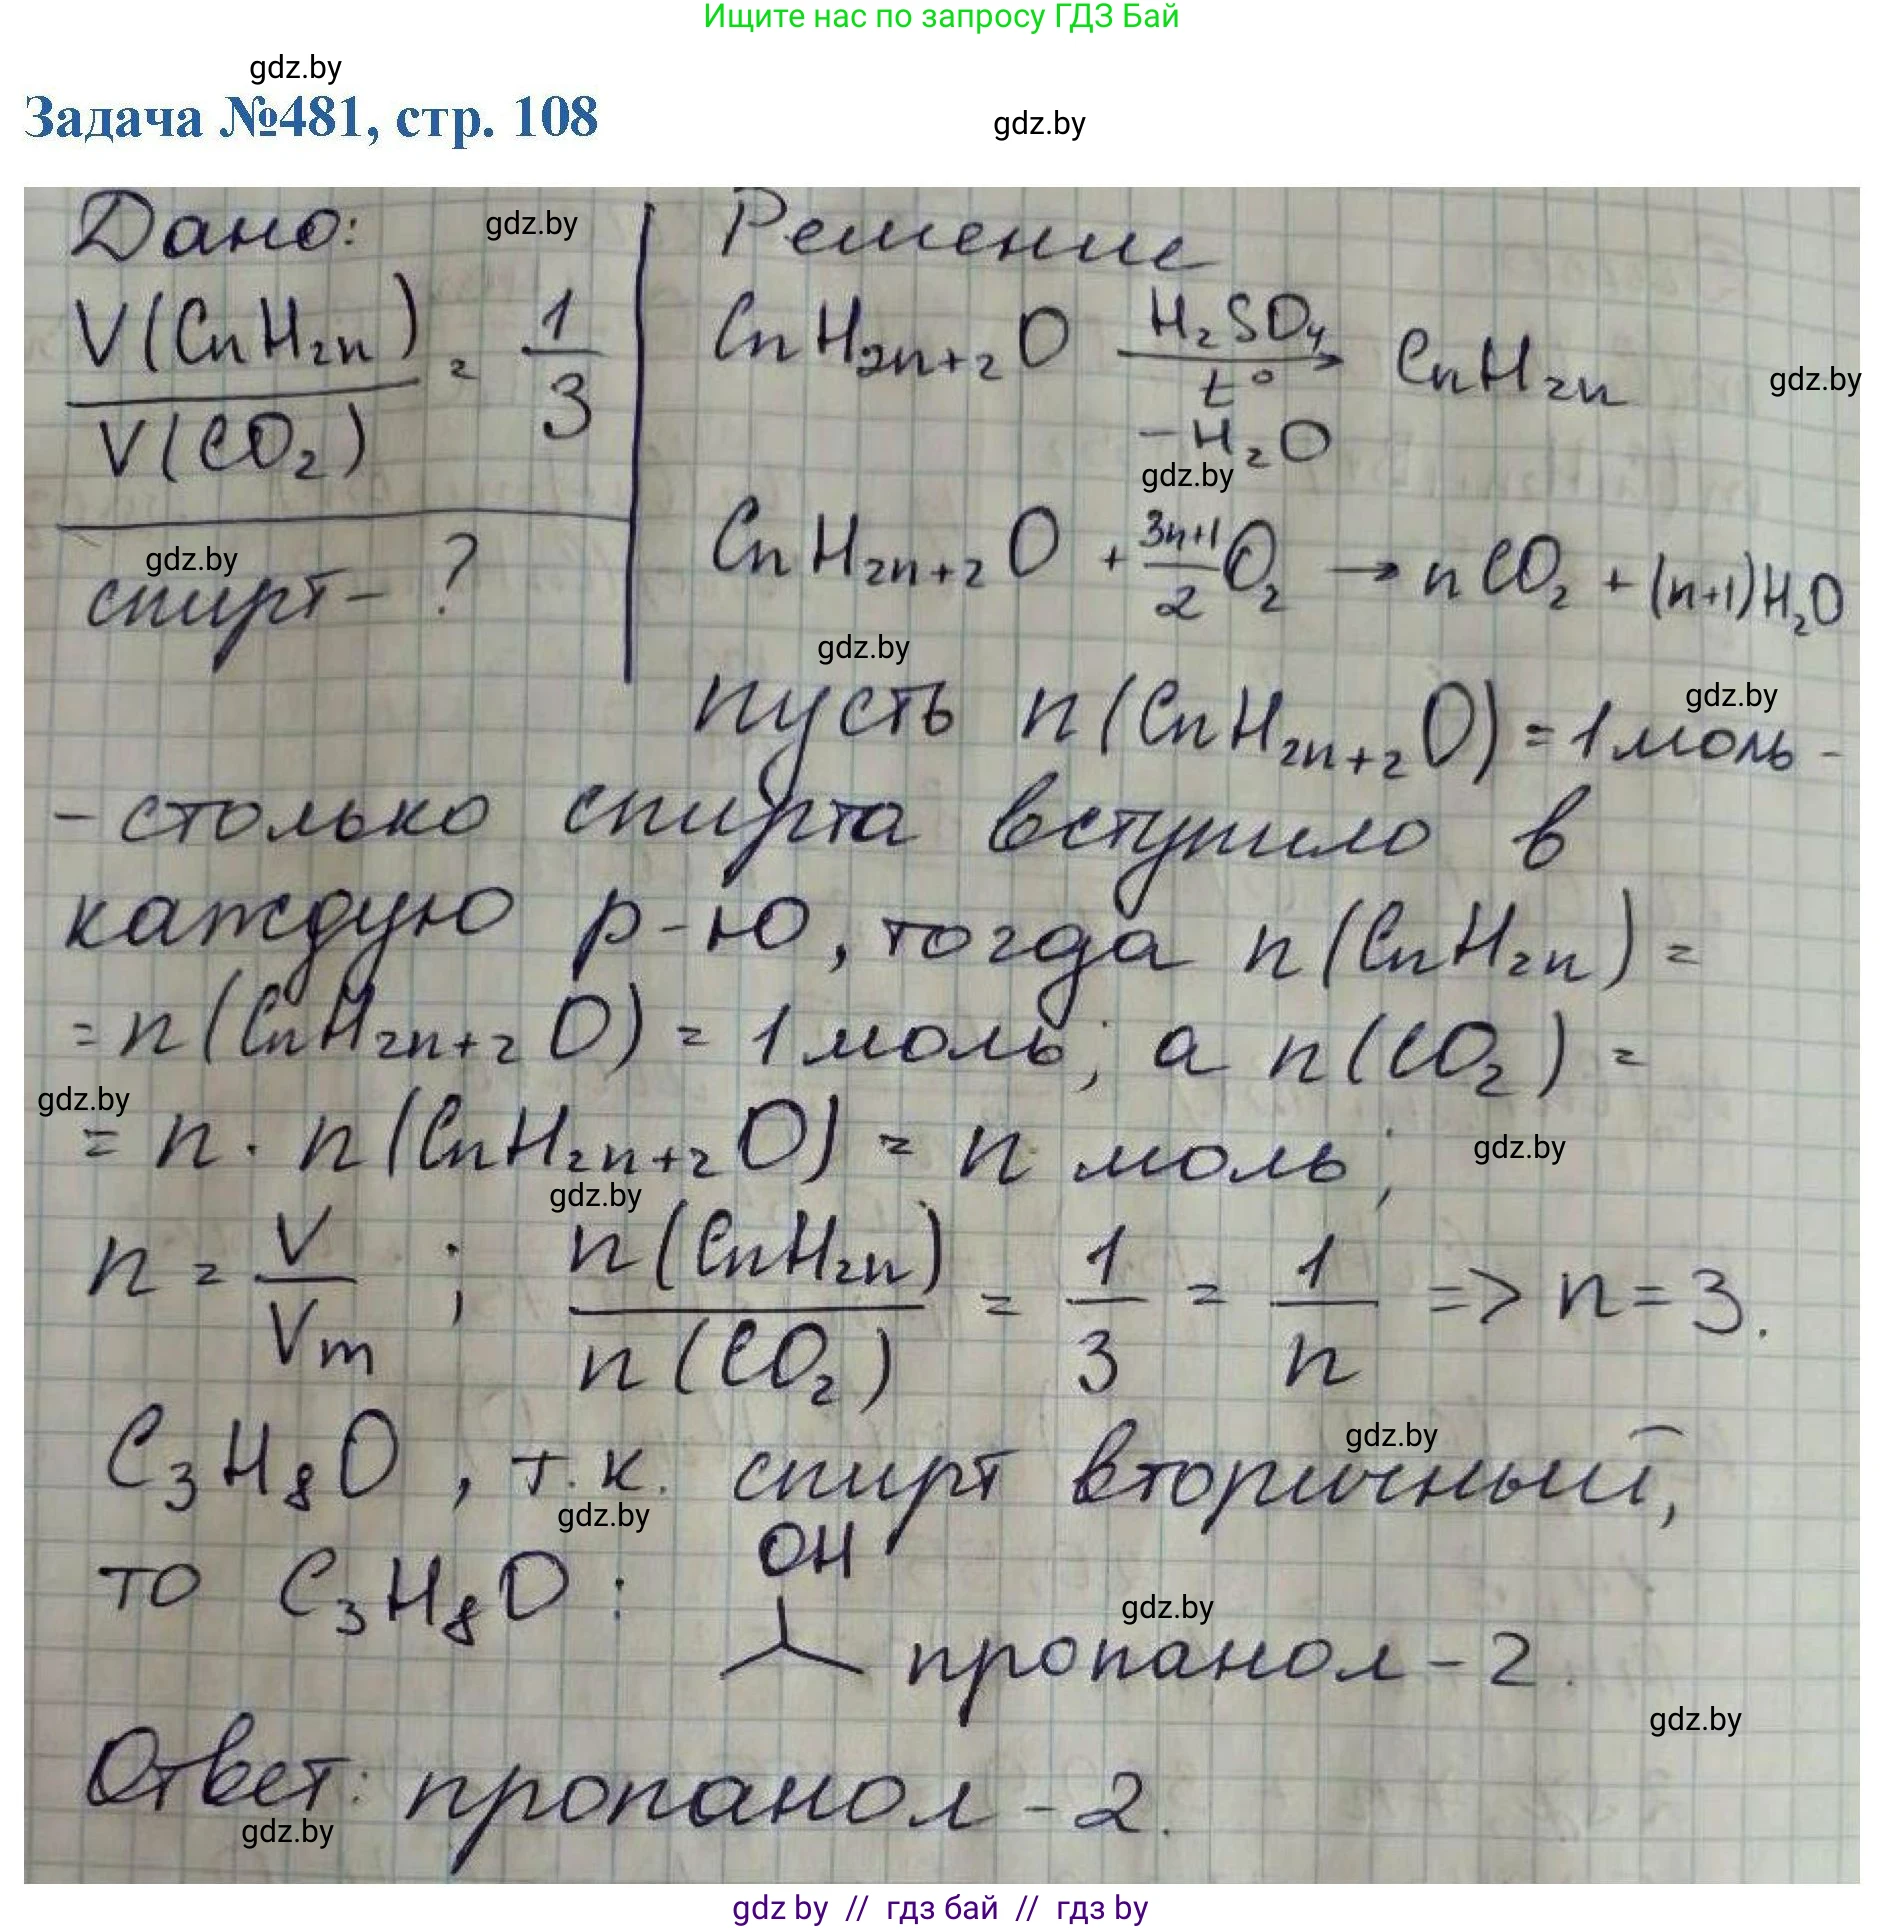 Ищите нас по запросу ГДЗ Бай
gdz.by
Задача №481, стр. 108
gdz.by
Дано:
gdz.by
V(CnH2n) / V(CO2) = 1/3
gdz.by
спирт - ?
Решение
CnH2n+2O H2SO4 t° → CnH2n
-H2O
gdz.by
gdz.by
CnH2n+2O + 3n+1/2 O2 → nCO2 + (n+1)H2O
gdz.by
gdz.by
пусть n(CnH2n+2O) = 1 моль -
- столько спирта вступило в
каждую р-ю, тогда n(CnH2n) =
= n(CnH2n+2O) = 1 моль; а n(CO2) =
gdz.by
= n · n(CnH2n+2O) = n моль;
gdz.by
gdz.by
n = V/Vm ; n(CnH2n) / n(CO2) = 1/3 = 1/n => n = 3.
gdz.by
C3H8O, т.к. спирт вторичный,
gdz.by
OH
то C3H8O : пропанол-2.
gdz.by
gdz.by
Ответ: пропанол-2.
gdz.by
gdz by // гдз бай // гдз by